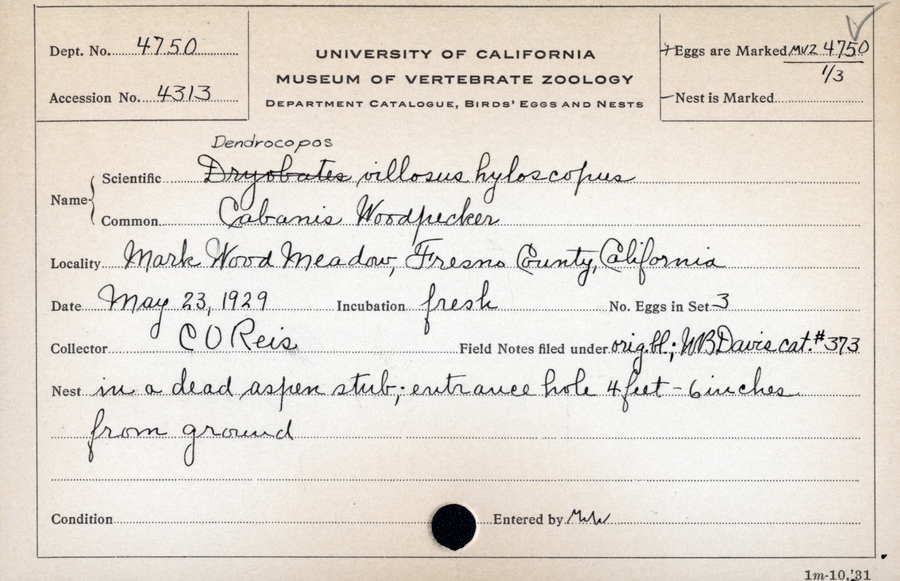 Dept. No. 4750
Accession No. 4313
UNIVERSITY OF CALIFORNIA
MUSEUM OF VERTEBRATE ZOOLOGY
DEPARTMENT CATALOGUE, BIRDS' EGGS AND NESTS
Eggs are Marked MVZ 4750
1/3
Nest is Marked
Dendrocopos
Name Scientific Dryobates villosus hyloscopus
Common Cabanis Woodpecker
Locality Mark Wood Meadow, Fresno County, California
Date May 23, 1929 Incubation fresh No. Eggs in Set 3
Collector C O Reis Field Notes filed under orig. bl.; WB Davis cat. #373
Nest in a dead aspen stub; entrance hole 4 feet - 6 inches
from ground
Condition Entered by
1m-10,'31